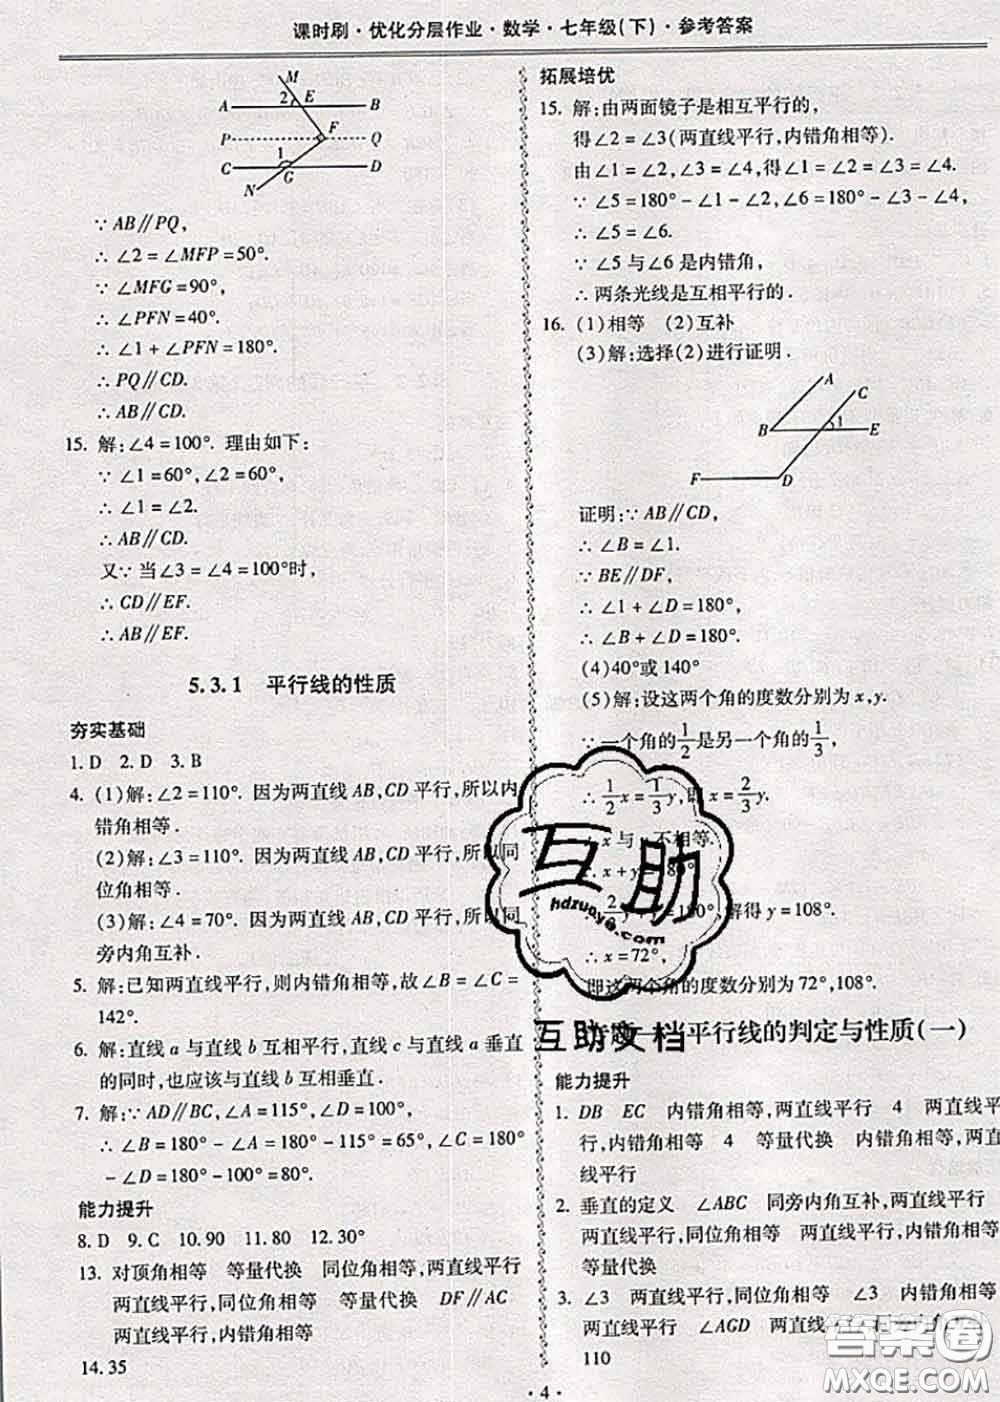 课时刷·优化分层作业·数学·七年级(下)·参考答案
M
A 2 E B
P F Q
C 1 D
N G
∵AB∥PQ,
∴∠2=∠MFP=50°.
∵∠MFG=90°,
∴∠PFN=40°.
∴∠1+∠PFN=180°.
∴PQ∥CD.
∴AB∥CD.
15. 解:∠4=100°. 理由如下:
∵∠1=60°,∠2=60°,
∴∠1=∠2.
∴AB∥CD.
又∵当∠3=∠4=100°时,
∴CD∥EF.
∴AB∥EF.
5.3.1 平行线的性质
夯实基础
1. D 2. D 3. B
4. (1)解:∠2=110°. 因为两直线 AB,CD 平行,所以内
错角相等.
(2)解:∠3=110°. 因为两直线 AB,CD 平行,所以同
位角相等.
(3)解:∠4=70°. 因为两直线 AB,CD 平行,所以同
旁内角互补.
5. 解:已知两直线平行,则内错角相等,故∠B=∠C=
142°.
6. 解:直线 a 与直线 b 互相平行,直线 c 与直线 a 垂直
的同时,也应该与直线 b 互相垂直.
7. 解:∵AD∥BC,∠A=115°,∠D=100°.
∴∠B=180°-∠A=180°-115°=65°,∠C=180°
-∠D=180°-100°=80°.
能力提升
8. D 9. C 10. 90 11. 80 12. 30°
13. 对顶角相等 等量代换 同位角相等,两直线平行
两直线平行,同位角相等 等量代换 DF∥AC
两直线平行,内错角相等
14. 35
拓展培优
15. 解:由两面镜子是相互平行的,
得∠2=∠3(两直线平行,内错角相等).
由∠1=∠2,∠3=∠4,得∠1=∠2=∠3=∠4.
∵∠5=180°-∠1-∠2,∠6=180°-∠3-∠4,
∴∠5=∠6.
∵∠5与∠6是内错角,
∴两条光线是互相平行的.
16. (1)相等 (2)互补
(3)解:选择(2)进行证明.
A
C
B 1 E
F D
证明:∵AB∥CD,
∴∠B=∠1.
∵BE∥DF,
∴∠1+∠D=180°,
∴∠B+∠D=180°.
(4)40°或140°
(5)解:设这两个角的度数分别为 x,y.
∵一个角的1/2是另一个角的1/3,
∴1/2x=1/3y,即 x=2/3y.
x 与 不相等.
∴x+y=180°.
2/3y+y=180°,解得 y=108°.
∴x=72°,
即这两个角的度数分别为72°,108°.
平行线的判定与性质(一)
能力提升
1. DB EC 内错角相等,两直线平行 4 两直线平
行,内错角相等 4 等量代换 内错角相等,两直
线平行
2. 垂直的定义 ∠ABC 同旁内角互补,两直线平行
两直线平行,同位角相等 两直线平行,内错角相等
等量代换
3. ∠3 两直线平行,同位角相等 ∠1=∠3
∠AGD 两直线平行,同旁内角互补
110
·4·
互助
hdzuoye.com
互助文档
答案圈
MXQE.COM